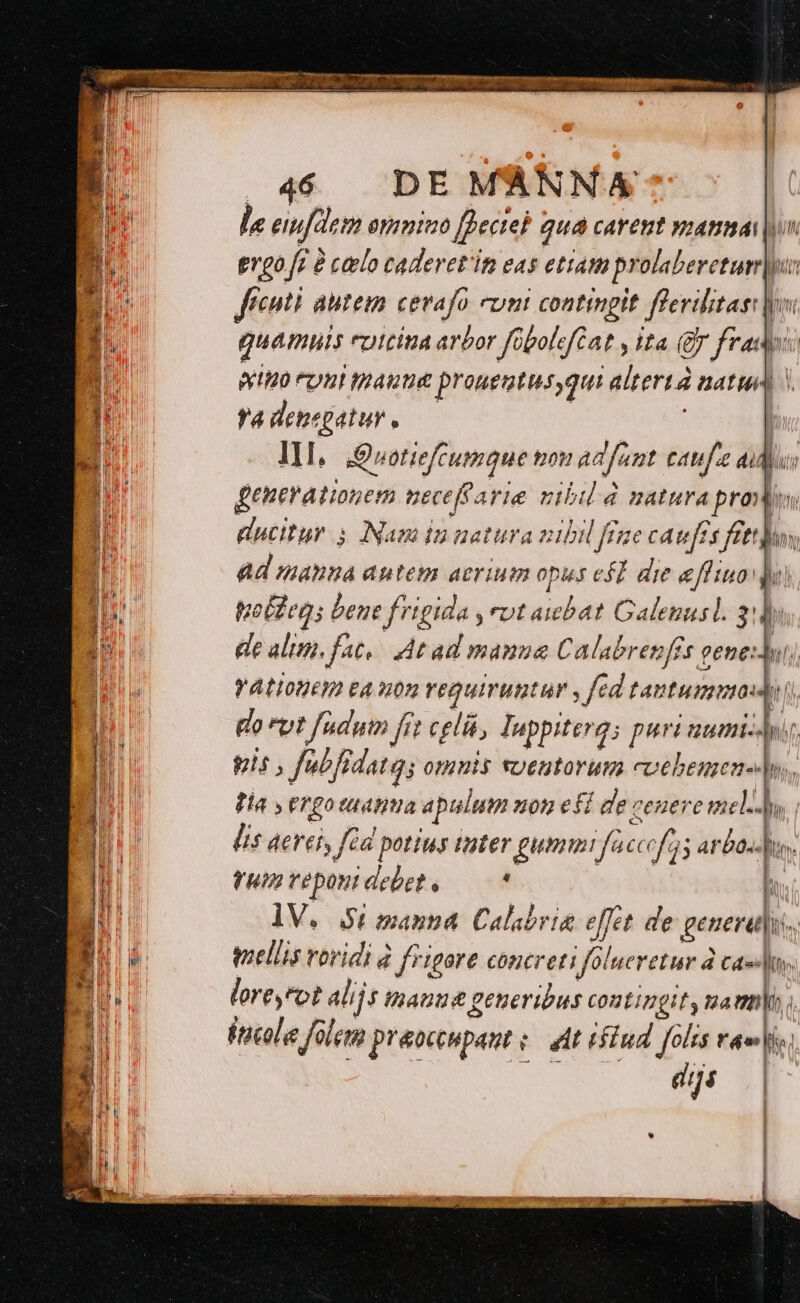 46 DE MANNA
le eiuſdem omnino ſpeciei qua carent manna:
ergo ſi è cœlo caderet in eas etiam prolaberetur
ſicuti autem ceraſo vni contingit ſterilitas:
quamuis vicina arbor ſobolefcat, ita & fra
xino vni mannæ prouentus, qui alteri à natu
ra denegatur.
III. Quotieſcumque non adſunt cauſæ ad
generationem neceſſariæ nihil à natura pro
ducitur; Nam in natura nihil ſine cauſis fit
ad manna autem aerium opus eſt die æſtiuo
nocteq; bene frigida, vt aiebat Galenus l. 3.
de alim. fac. At ad mannæ Calabrenſis gene
rationem ea non requiruntur, ſed tantummo
do vt ſudum ſit cęlũ, Iuppiterq; puri numi
nis, ſubſidatq; omnis ventorum vehemen
tia, ergo manna apulum non eſt de genere mel
lis aerei, ſed potius inter gummi ſuccoſq; arbo
rum reponi debet.
IV. Si manna Calabriæ eſſet de genere
mellis roridi à frigore concreti ſolueretur à ca
lore, vt alijs mannæ generibus contingit, nam
incolæ ſolem præoccupant: At iſtud ſolis ra
dijs